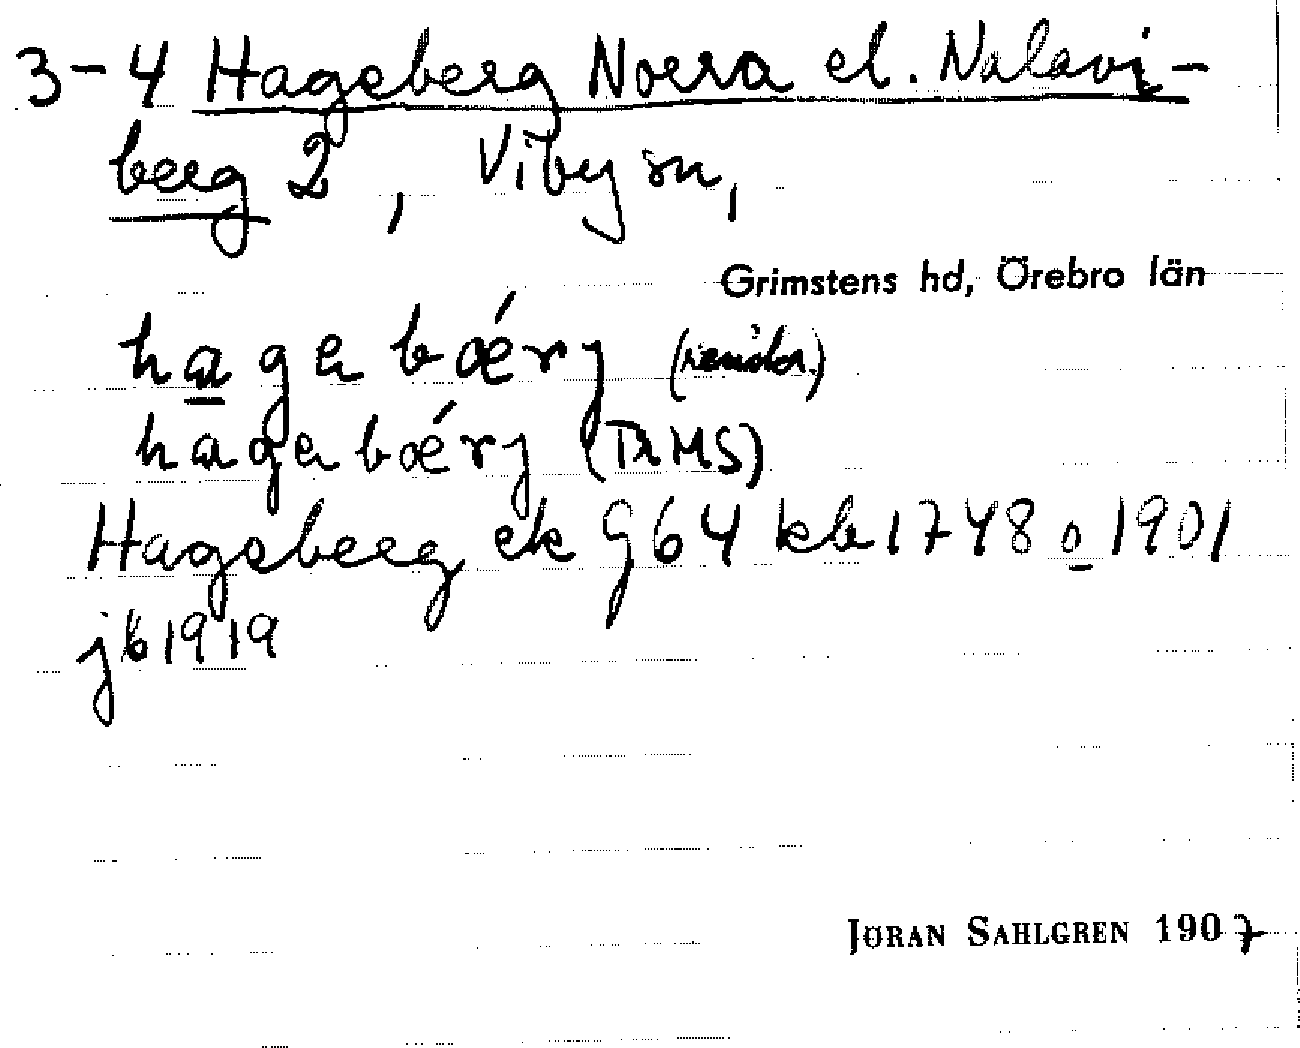 3-4 Hageberg Norra el. Nalavi-
berg 2, Viby sn,
Grimstens hd, Örebro län
hagabǽrj
hagabǽrj (TRMS)
Hageberg ek G64 kb 1748 o 1901
jb 1919
JÖRAN SAHLGREN 1907